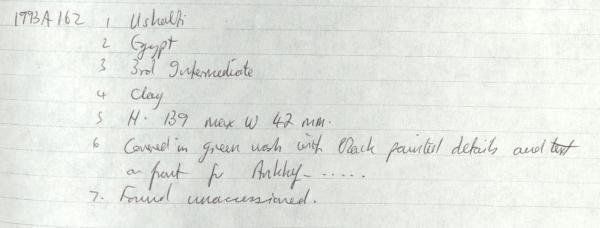 1993A162 1 Ushabti
2 Egypt
3 3rd Intermediate
4 Clay
5 H. 139 max W 42 mm.
6 Covered in green wash with black painted details and text
on front for
7. Found unaccessioned.